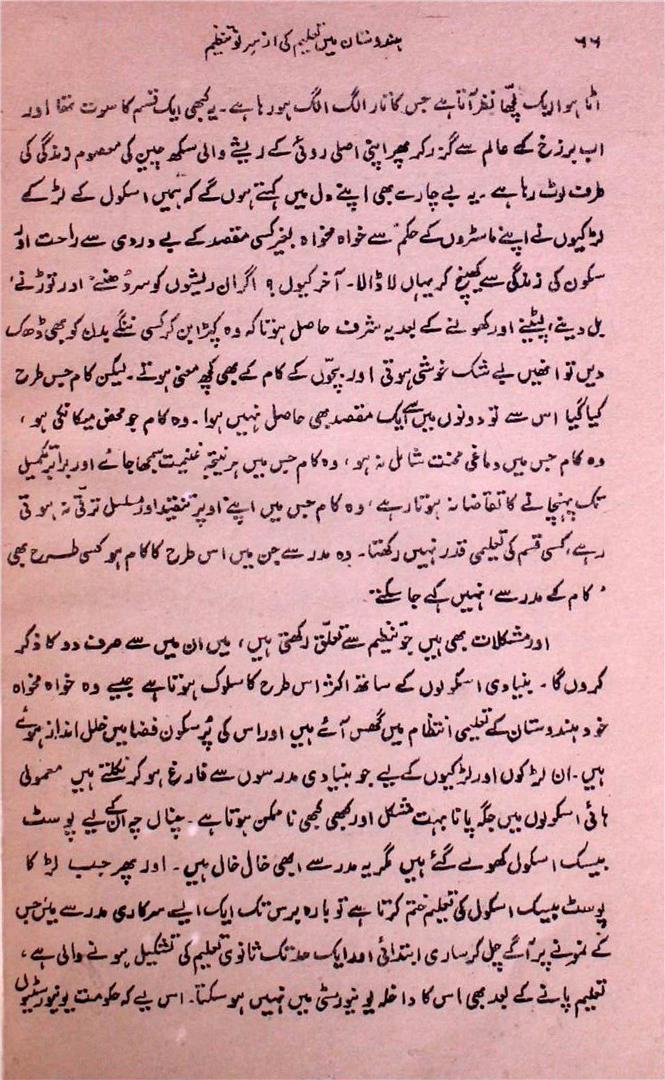 ۶۶ ہندوستان میں تعلیم کی از سرِ نو تنظیم
اٹا ہوا ایک گچھا نظر آتا ہے جس کا تار الگ الگ ہو رہا ہے۔ یہ کبھی ایک قسم کا سوت تھا اور
اب برزخ کے عالم سے گزر کر پھر اپنی اصلی روئی کے ریشے والی سکھ چین کی معصوم زندگی کی
طرف لوٹ رہا ہے۔ یہ بے چارے بھی اپنے دل میں کہتے ہوں گے کہ ہمیں اسکول کے لڑکے
لڑکیوں نے اپنے ماسٹروں کے حکم سے خواہ مخواہ بغیر کسی مقصد کے بے دردی سے راحت اور
سکون کی زندگی سے کھینچ کر یہاں لا ڈالا۔ آخر کیوں؟ اگر ان ریشوں کو سر دُھننے اور توڑنے،
بل دینے، لپٹنے اور کھولنے کے بعد یہ شرف حاصل ہوتا کہ وہ کپڑا بن کر کسی ننگے بدن کو بھی ڈھک
دیں تو انھیں بے شک خوشی ہوتی اور بچّوں کے کام کے بھی کچھ معنی ہوتے۔ لیکن کام جس طرح
کیا گیا اس سے تو دونوں میں سے ایک مقصد بھی حاصل نہیں ہوا۔ وہ کام جو محض میکانکی ہو،
وہ کام جس میں دماغی محنت شامل نہ ہو، وہ کام جس میں ہر نتیجہ غنیمت سمجھا جائے اور برابر تکمیل
تک پہنچانے کا تقاضا نہ ہوتا رہے، وہ کام جس میں اپنے اوپر تنقید اور مسلسل ترقّی نہ ہوتی
رہے، کسی قسم کی تعلیمی قدر نہیں رکھتا۔ وہ مدرسے جن میں اس طرح کا کام ہو کسی طرح بھی
'کام کے مدرسے' نہیں کہے جا سکتے۔
اور مشکلات بھی ہیں جو تنظیم سے تعلّق رکھتی ہیں، میں ان میں سے صرف دو کا ذکر
کروں گا۔ بنیادی اسکولوں کے ساتھ اکثر اس طرح کا سلوک ہوتا ہے جیسے وہ خواہ مخواہ
خود ہندوستان کے تعلیمی انتظام میں گھس آئے ہیں اور اس کی پُر سکون فضا میں خلل انداز ہوئے
ہیں۔ ان لڑکوں اور لڑکیوں کے لیے جو بنیادی مدرسوں سے فارغ ہو کر نکلتے ہیں معمولی
ہائی اسکولوں میں جگہ پانا بہت مشکل اور کبھی کبھی نا ممکن ہوتا ہے۔ چناں چہ ان کے لیے پوسٹ
بیسک اسکول کھولے گئے ہیں مگر یہ مدرسے ابھی خال خال ہیں۔ اور پھر جب لڑکا
پوسٹ بیسک اسکول کی تعلیم ختم کرتا ہے تو بارہ برس تک ایک ایسے سرکاری مدرسے میں جس
کے نمونے پر آگے چل کر ساری ابتدائی اور ایک حد تک ثانوی تعلیم کی تشکیل ہونے والی ہے،
تعلیم پانے کے بعد بھی اس کا داخلہ یونیورسٹی میں نہیں ہو سکتا۔ اس لیے کہ حکومت یونیورسٹیوں